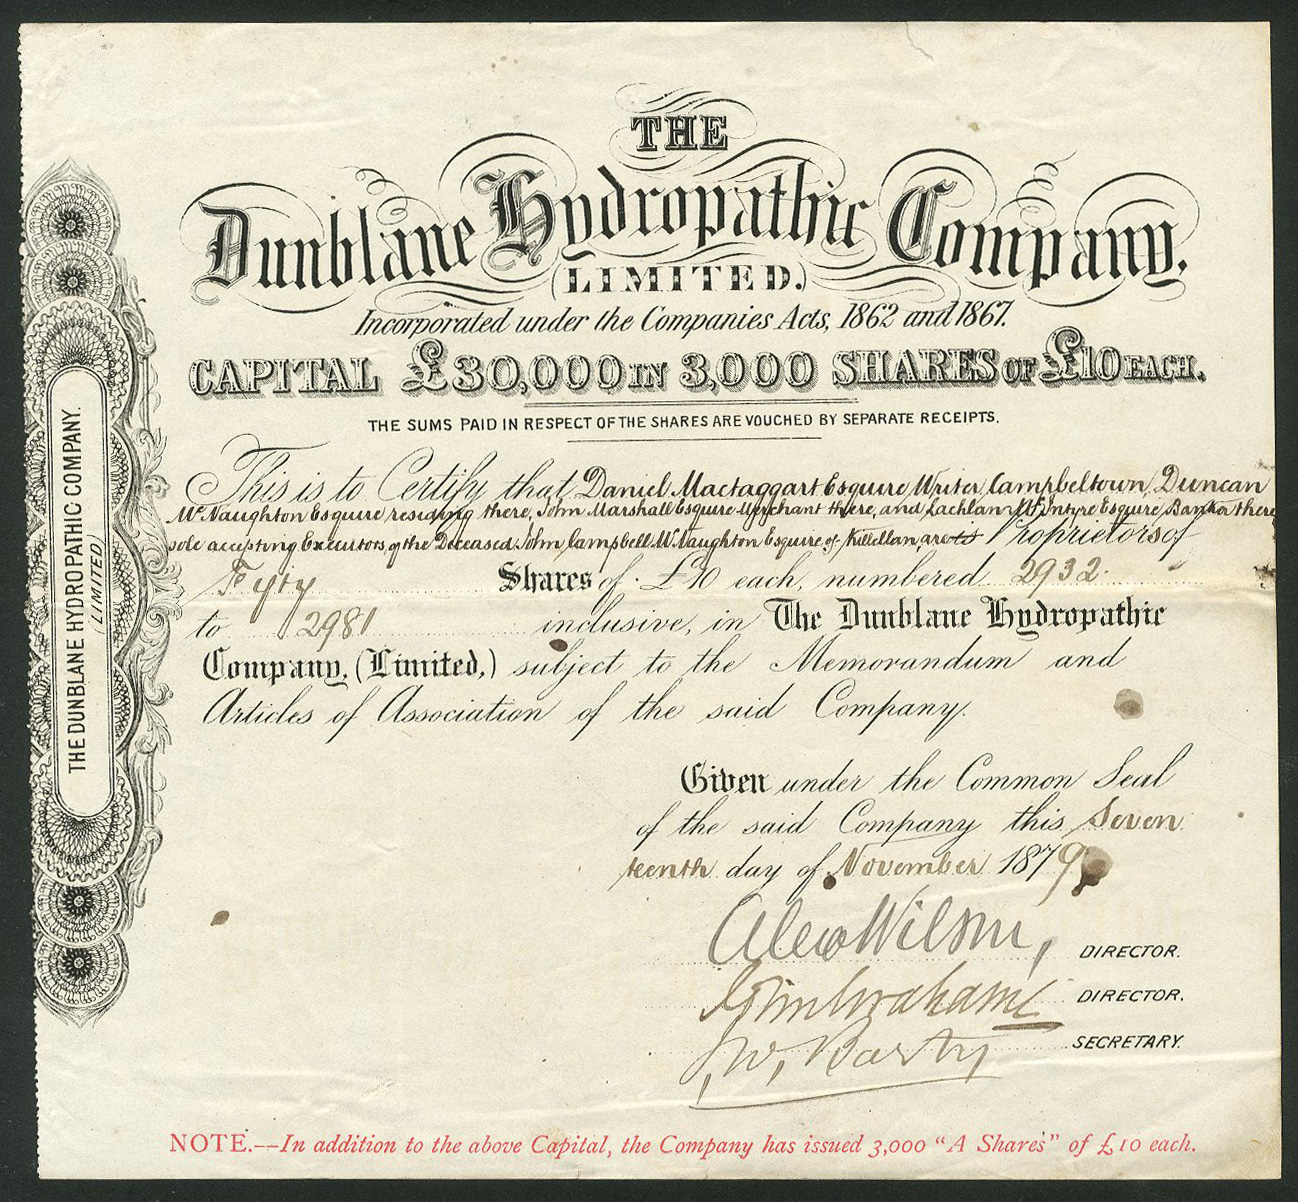 THE
Dunblane Hydropathic Company,
(LIMITED.)
Incorporated under the Companies Acts, 1862 and 1867.
CAPITAL £30,000 IN 3,000 SHARES OF £10 EACH.
THE SUMS PAID IN RESPECT OF THE SHARES ARE VOUCHED BY SEPARATE RECEIPTS.
This is to Certify that Daniel Mactaggart Esquire Writer Campbeltown, Duncan
McNaughton Esquire residing there, John Marshall Esquire Merchant there, and Lachlan McIntyre Esquire Banker there
sole accepting Executors of the Deceased John Campbell McNaughton Esquire of Killellan, are is Proprietors of
Fifty Shares of £10 each, numbered 2932
to 2981 inclusive, in The Dunblane Hydropathic
Company, (Limited,) subject to the Memorandum and
Articles of Association of the said Company.
Given under the Common Seal
of the said Company this Seven
teenth day of November 1879
Alex Wilson, DIRECTOR.
John Graham DIRECTOR.
J, W, Barty SECRETARY.
NOTE.—In addition to the above Capital, the Company has issued 3,000 “A Shares” of £10 each.
THE DUNBLANE HYDROPATHIC COMPANY.
(LIMITED)